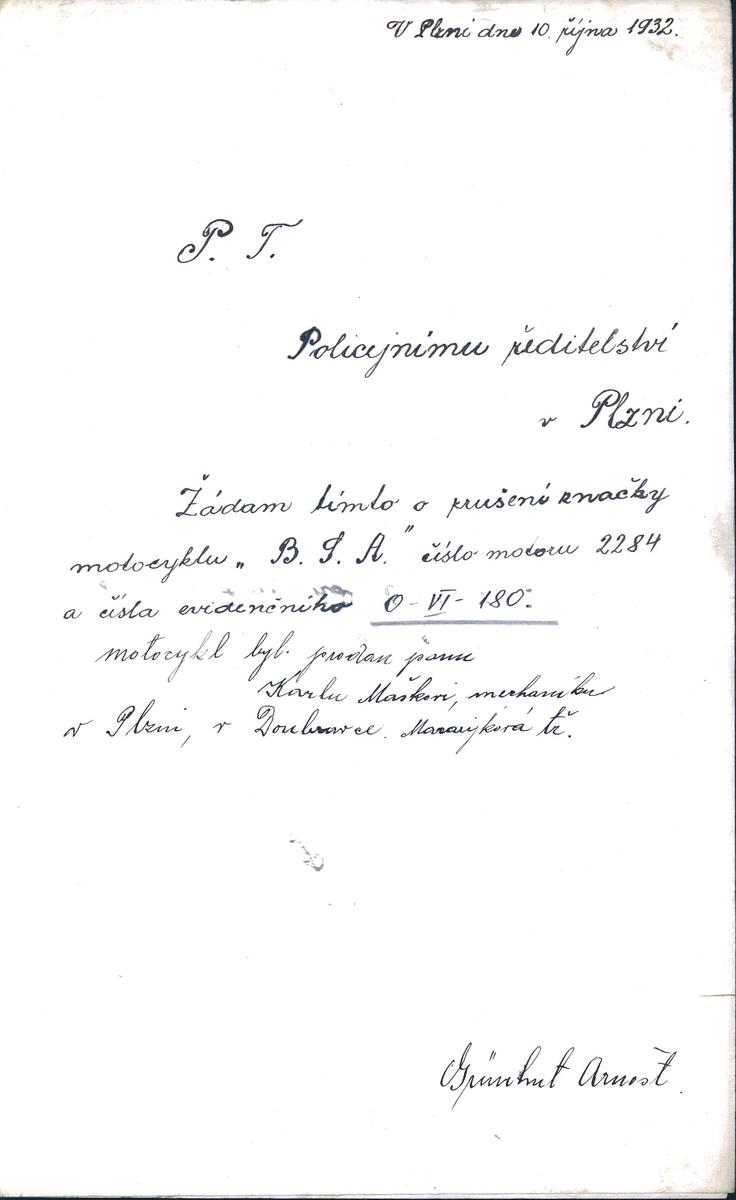 V Plzni dne 10. října 1932.
P. T.
Policejnímu ředitelství
v Plzni.
Žádam tímto o zrušení značky
motocyklu „ B. S. A. " číslo motoru 2284
a čísla evidenčního O-VI-180.
motocykl byl. prodan panu
Karlu Maškovi, mechaniku
v Plzni, v Doubravce. Masaryková tř.
Grünhut Arnošt